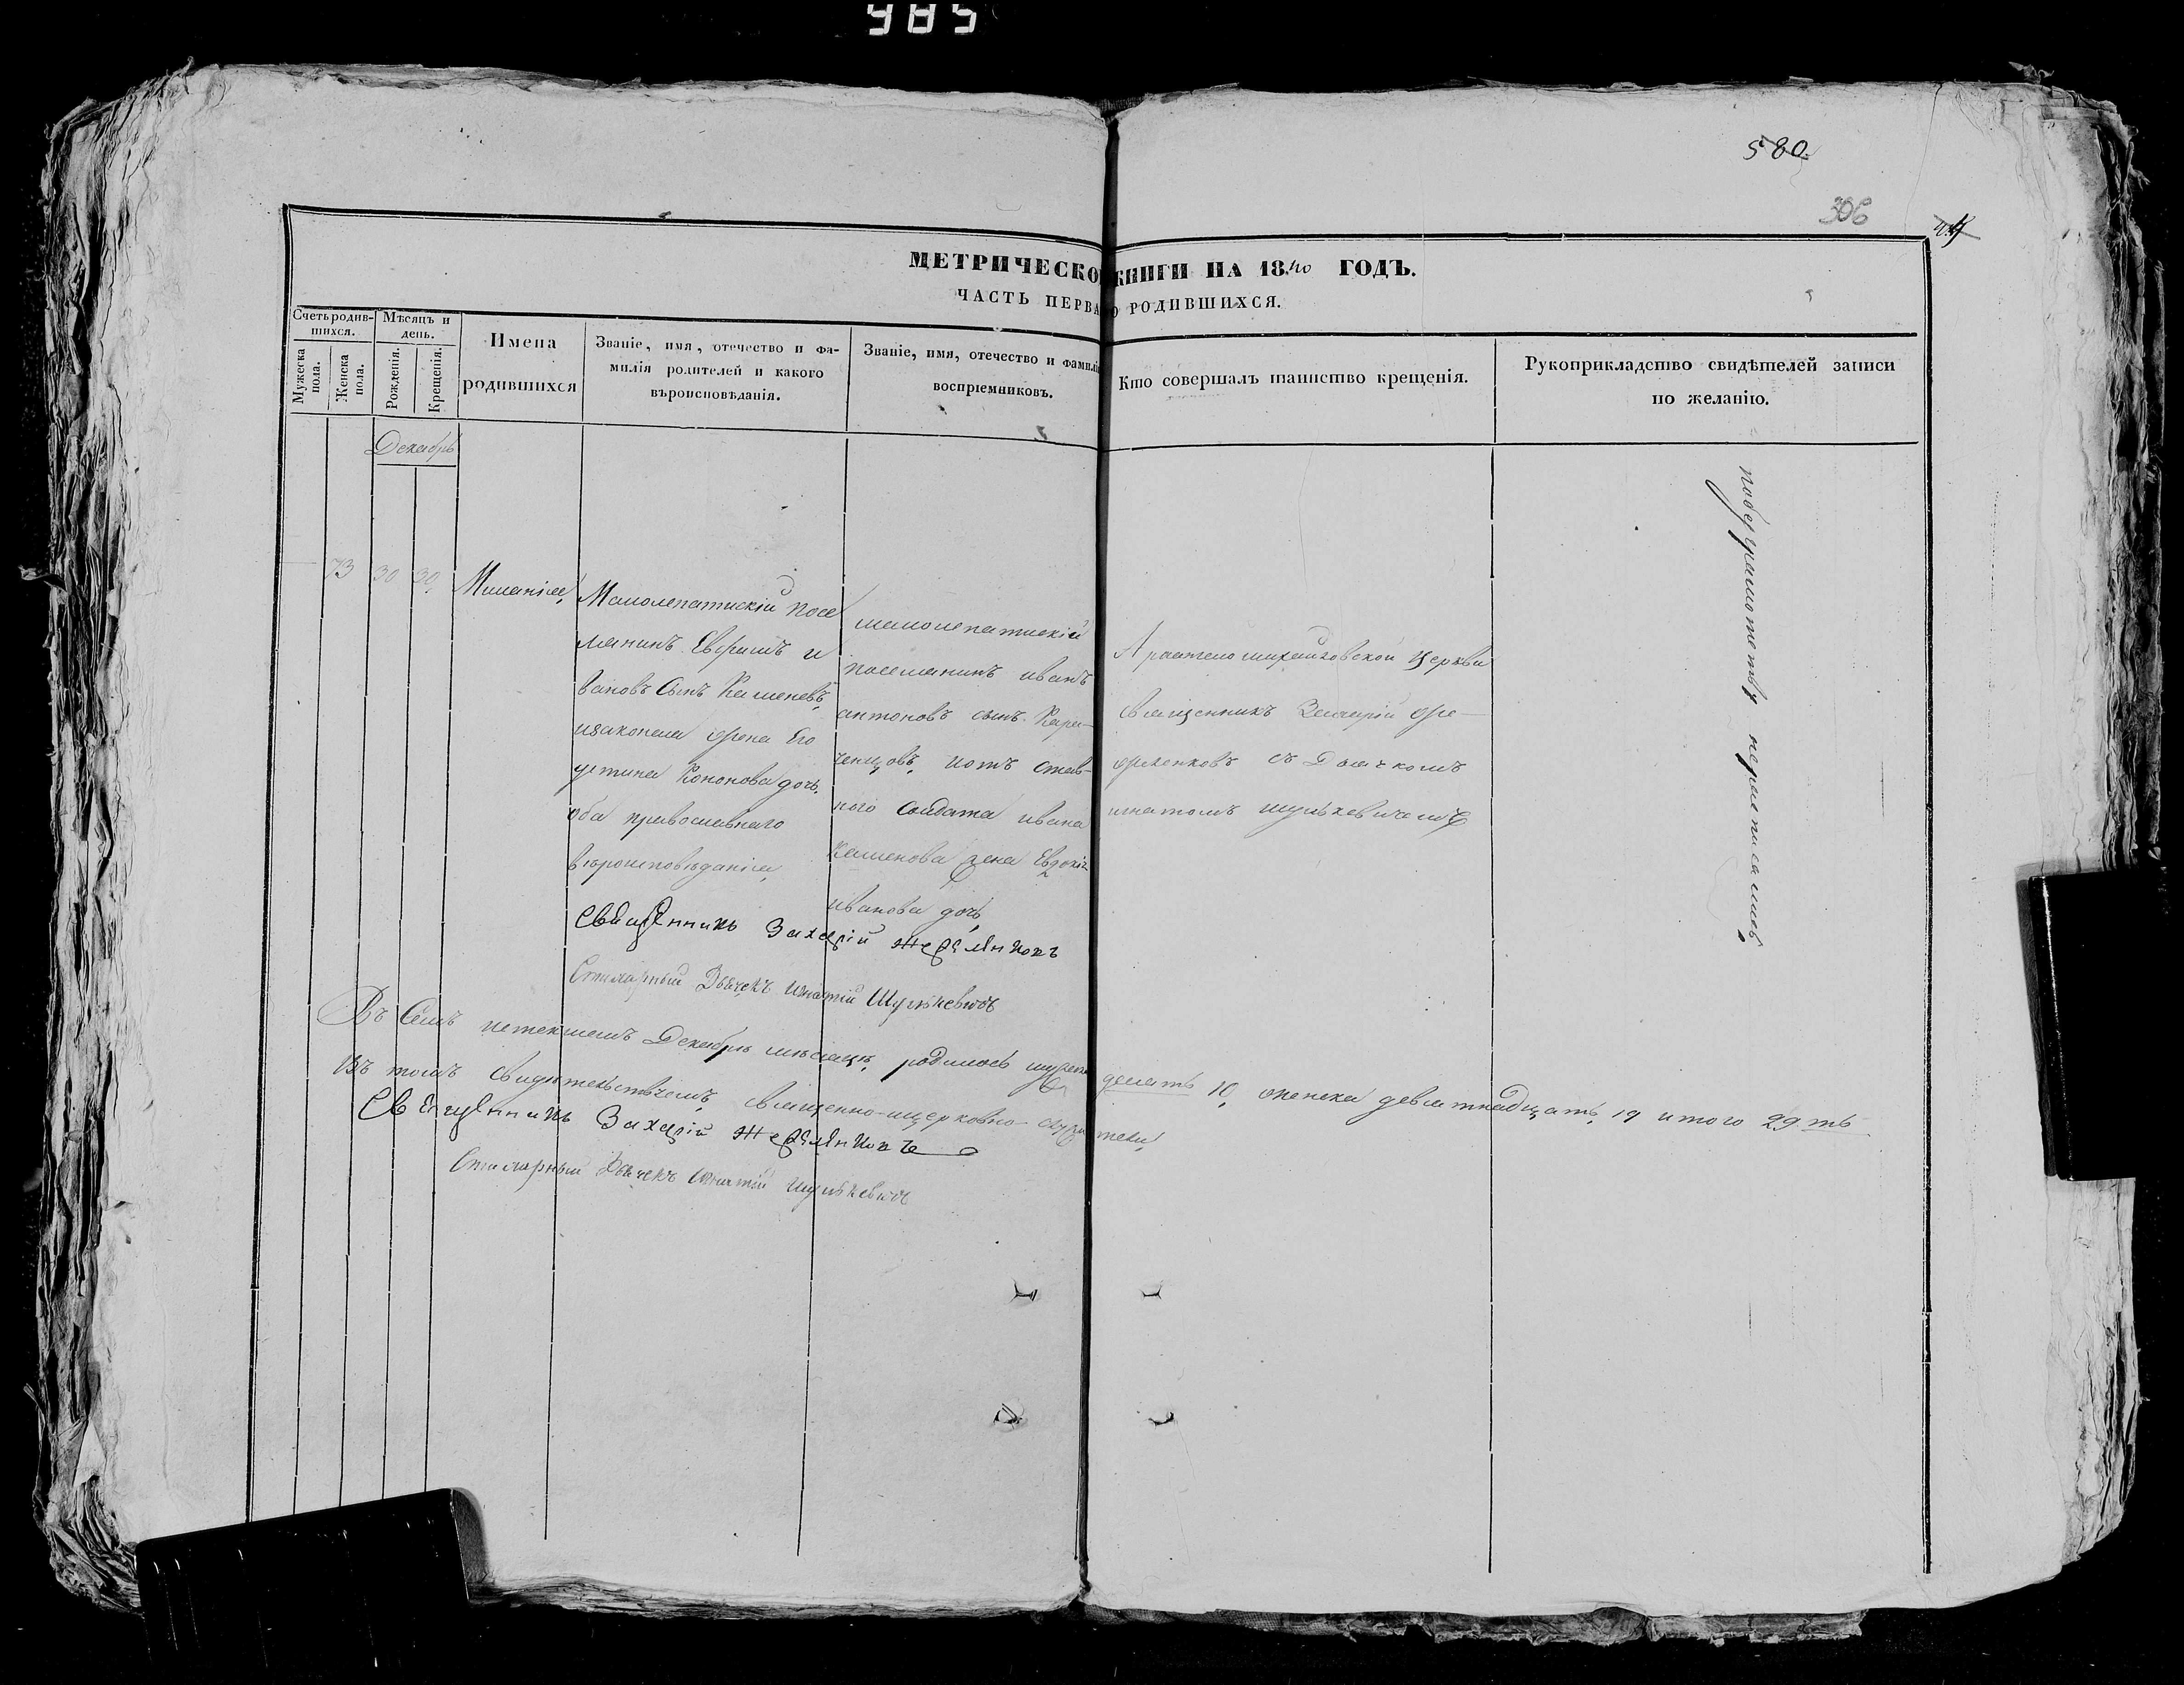 985
580
306
МЕТРИЧЕСКО КНИГИ НА 1840 ГОДЪ.
ЧАСТЬ ПЕРВА О РОДИВШИХСЯ.
Счетъ родив-
шихся.
Мужеска
пола.
Женска
пола.
Мѣсяцъ и
день.
Рожденія.
Крещенія.
Имена
родившихся
Званіе, имя, отечество и фа-
милія родителей и какого
вѣроисповѣданія.
Званіе, имя, отечество и фамилі
воспріемниковъ.
Кто совершалъ таинство крещенія.
Рукоприкладство свидѣтелей записи
по желанію.
Декабрь
73
30
30
Миланія
Малолепатискій посе
лянинъ Ефимъ и
вановъ Сынъ Каменевъ,
изаконная жена Его
устина Кононова дочь.
оба православнаго
вѣроисповѣданія,
малолепатискій
поселянинъ иванъ
антоновъ сынъ
иотъ отав-
ного Солдата ивана
Каменова жена Евдокія
иванова дочь
церкви
священникъ Захарій Же-
съ Дьячкомъ
игнатомъ шулькевичемъ
Священникъ Захарій
Дьячекъ Игнатій Шулькевичъ
Въ Семъ истекшемъ Декабрѣ мѣсяцѣ, родилось мужеска десять 10, женска девятнадцать, 19 итого 29ть
Въ томъ свидѣтельствуемъ, священно-ицерковно-служители,
Священникъ Захарій
Дьячекъ Игнатій шулькевичъ